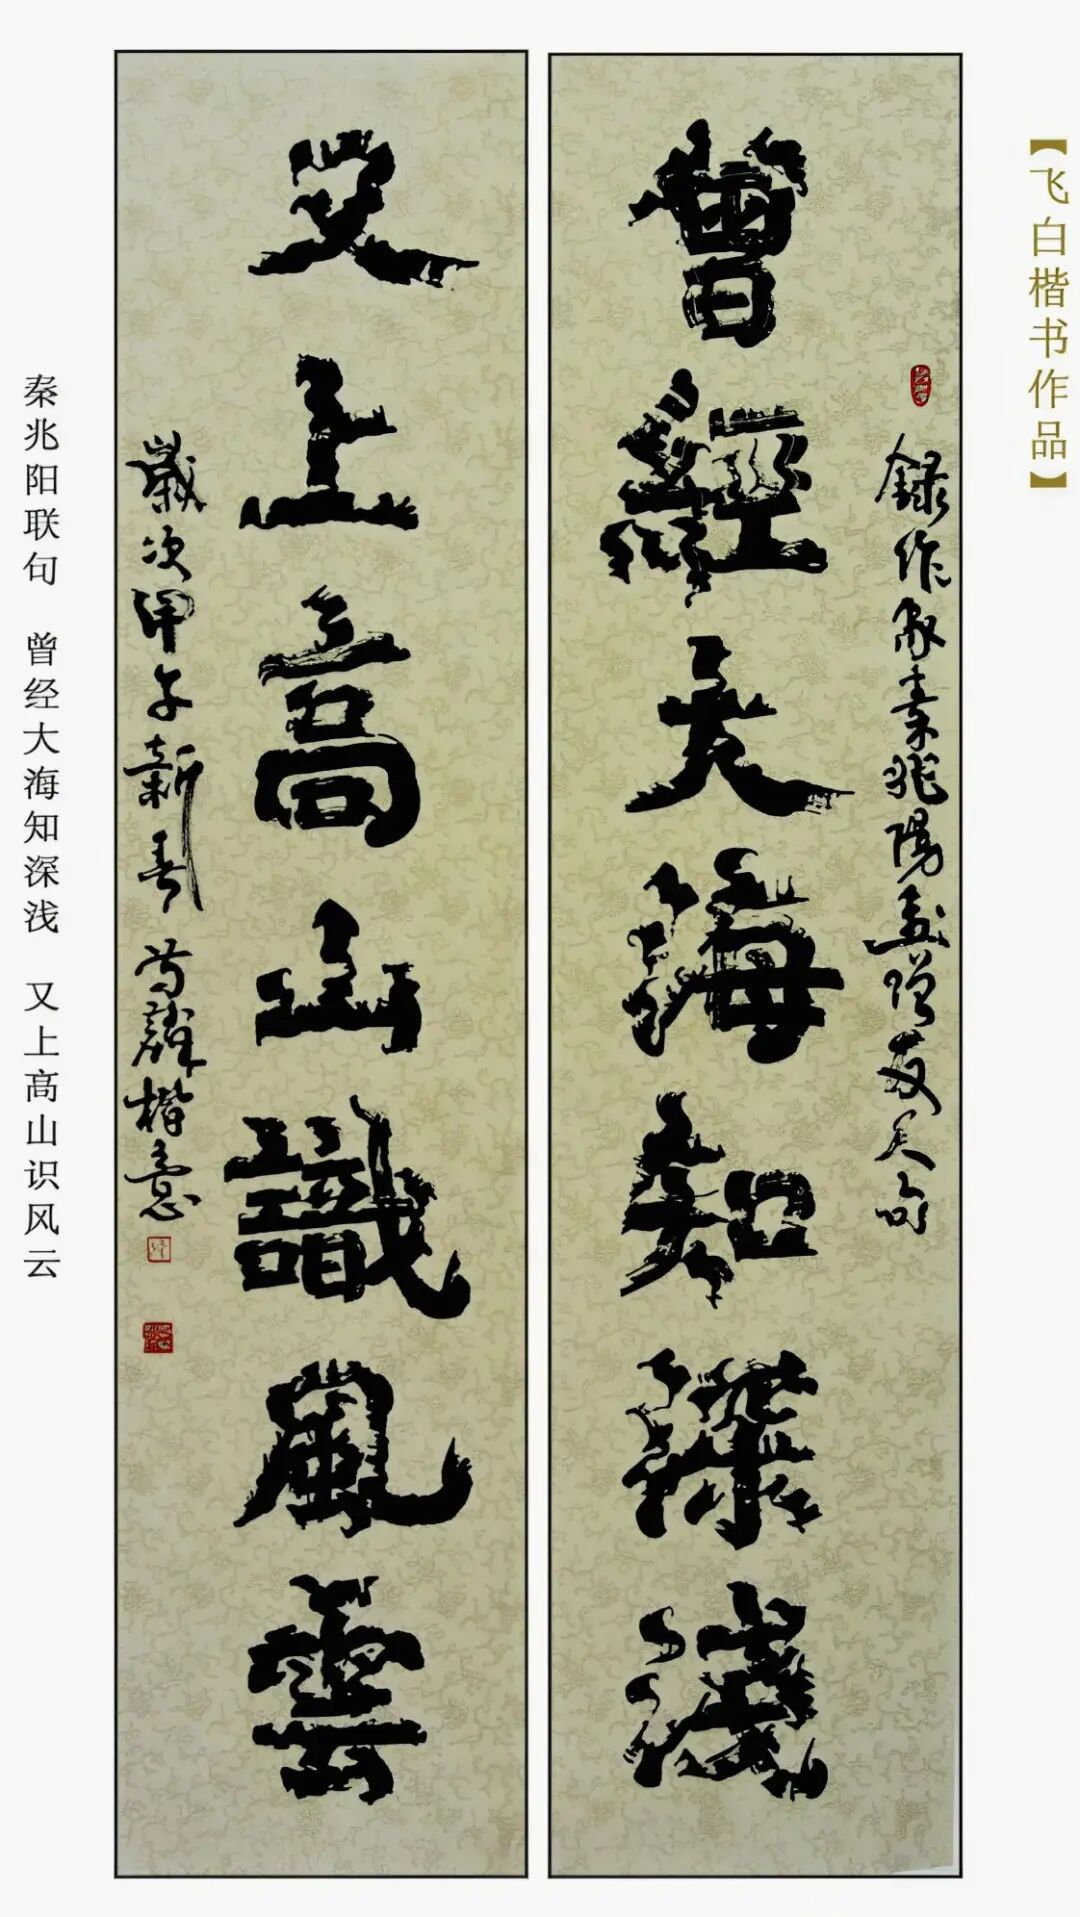 【飞白楷书作品】
錄作家秦兆陽先贈友人句
曾經大海知深淺
又上高山識風雲
歲次甲午新春
楷意
秦兆阳联句 曾经大海知深浅 又上高山识风云